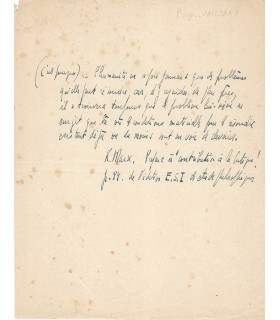 (C'est pourquoi) — l'humanité ne se pose jamais que des problèmes
qu'elle peut résoudre, car, à y regarder de plus près,
il se trouvera toujours que le problème lui-même ne
surgit que là où les conditions matérielles pour le résoudre
existent déjà ou du moins sont en voie de devenir.
K. Marx. Préface à "contribution à la critique"
p.  de l'édition E.S.I